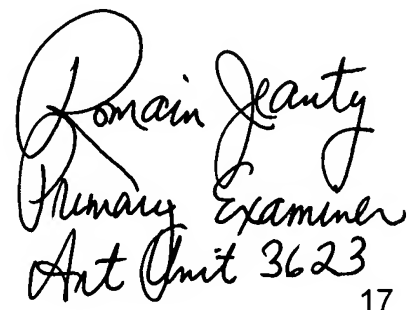 Romain Jeanty
Primary Examiner
Art Unit 3623
17